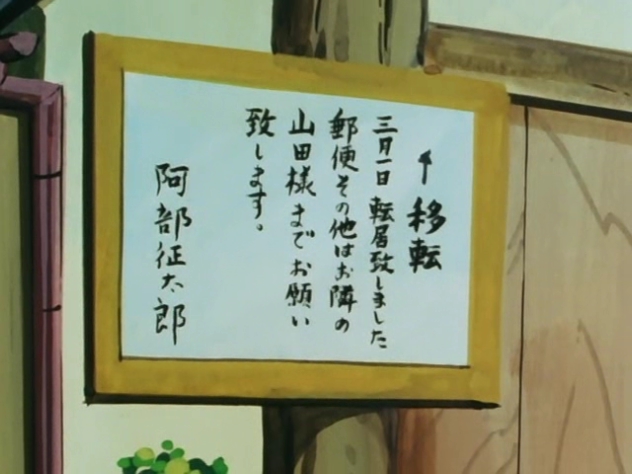 ↑移転
三月一日転居致しました
郵便その他はお隣の
山田様までお願い
致します。
阿部征太郎